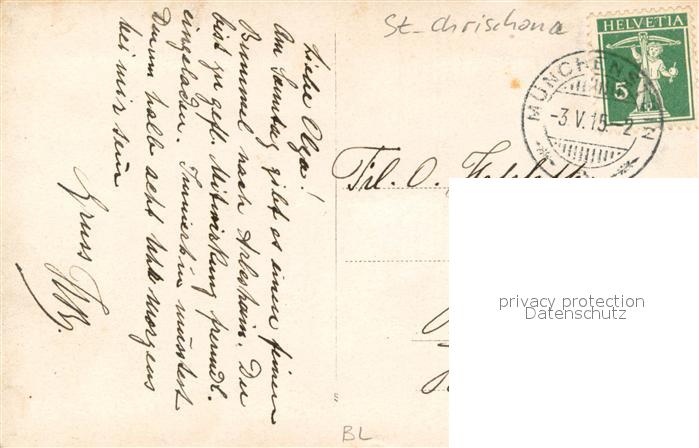 St. Chrischona
HELVETIA
5
MÜNCHENST
-3.V.15.-2
Frl. O.
Liebe Olga!
Am Sonntag gibt es einen feinen
Bummel nach Arlesheim. Du
bist zu gefl. Mitwirkung freundl.
eingeladen. Immerhin müsstest
Du um halb acht Uhr morgens
bei mir sein
Gruss
privacy protection
Datenschutz
BL